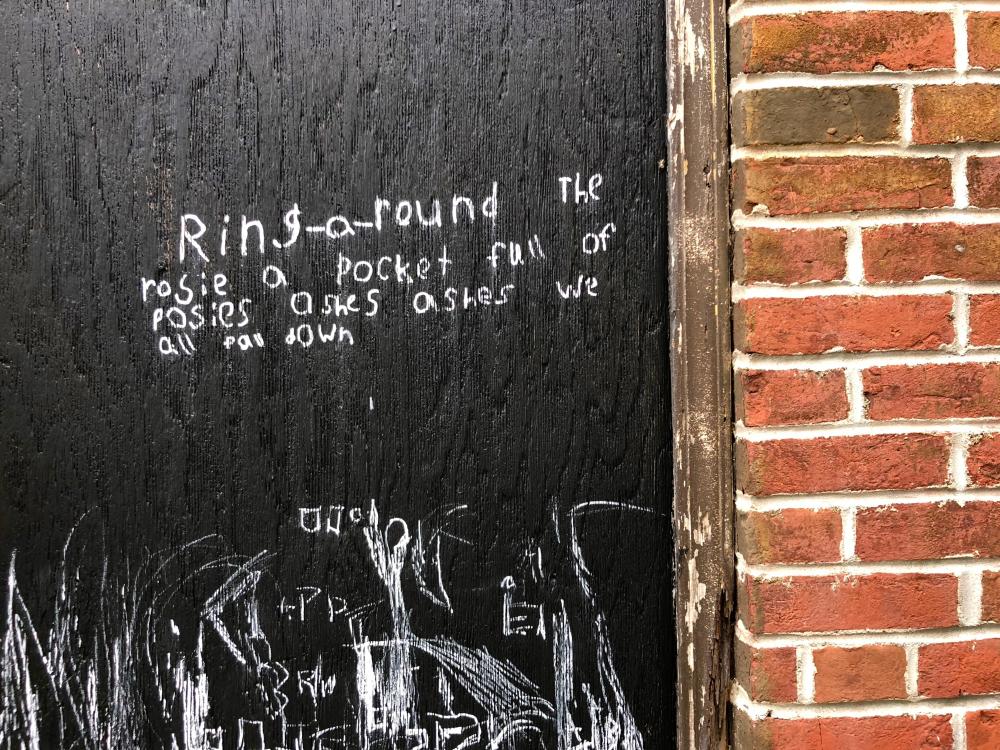 Ring-a-round The
rosie a pocket full of
posies ashes ashes we
all fall down